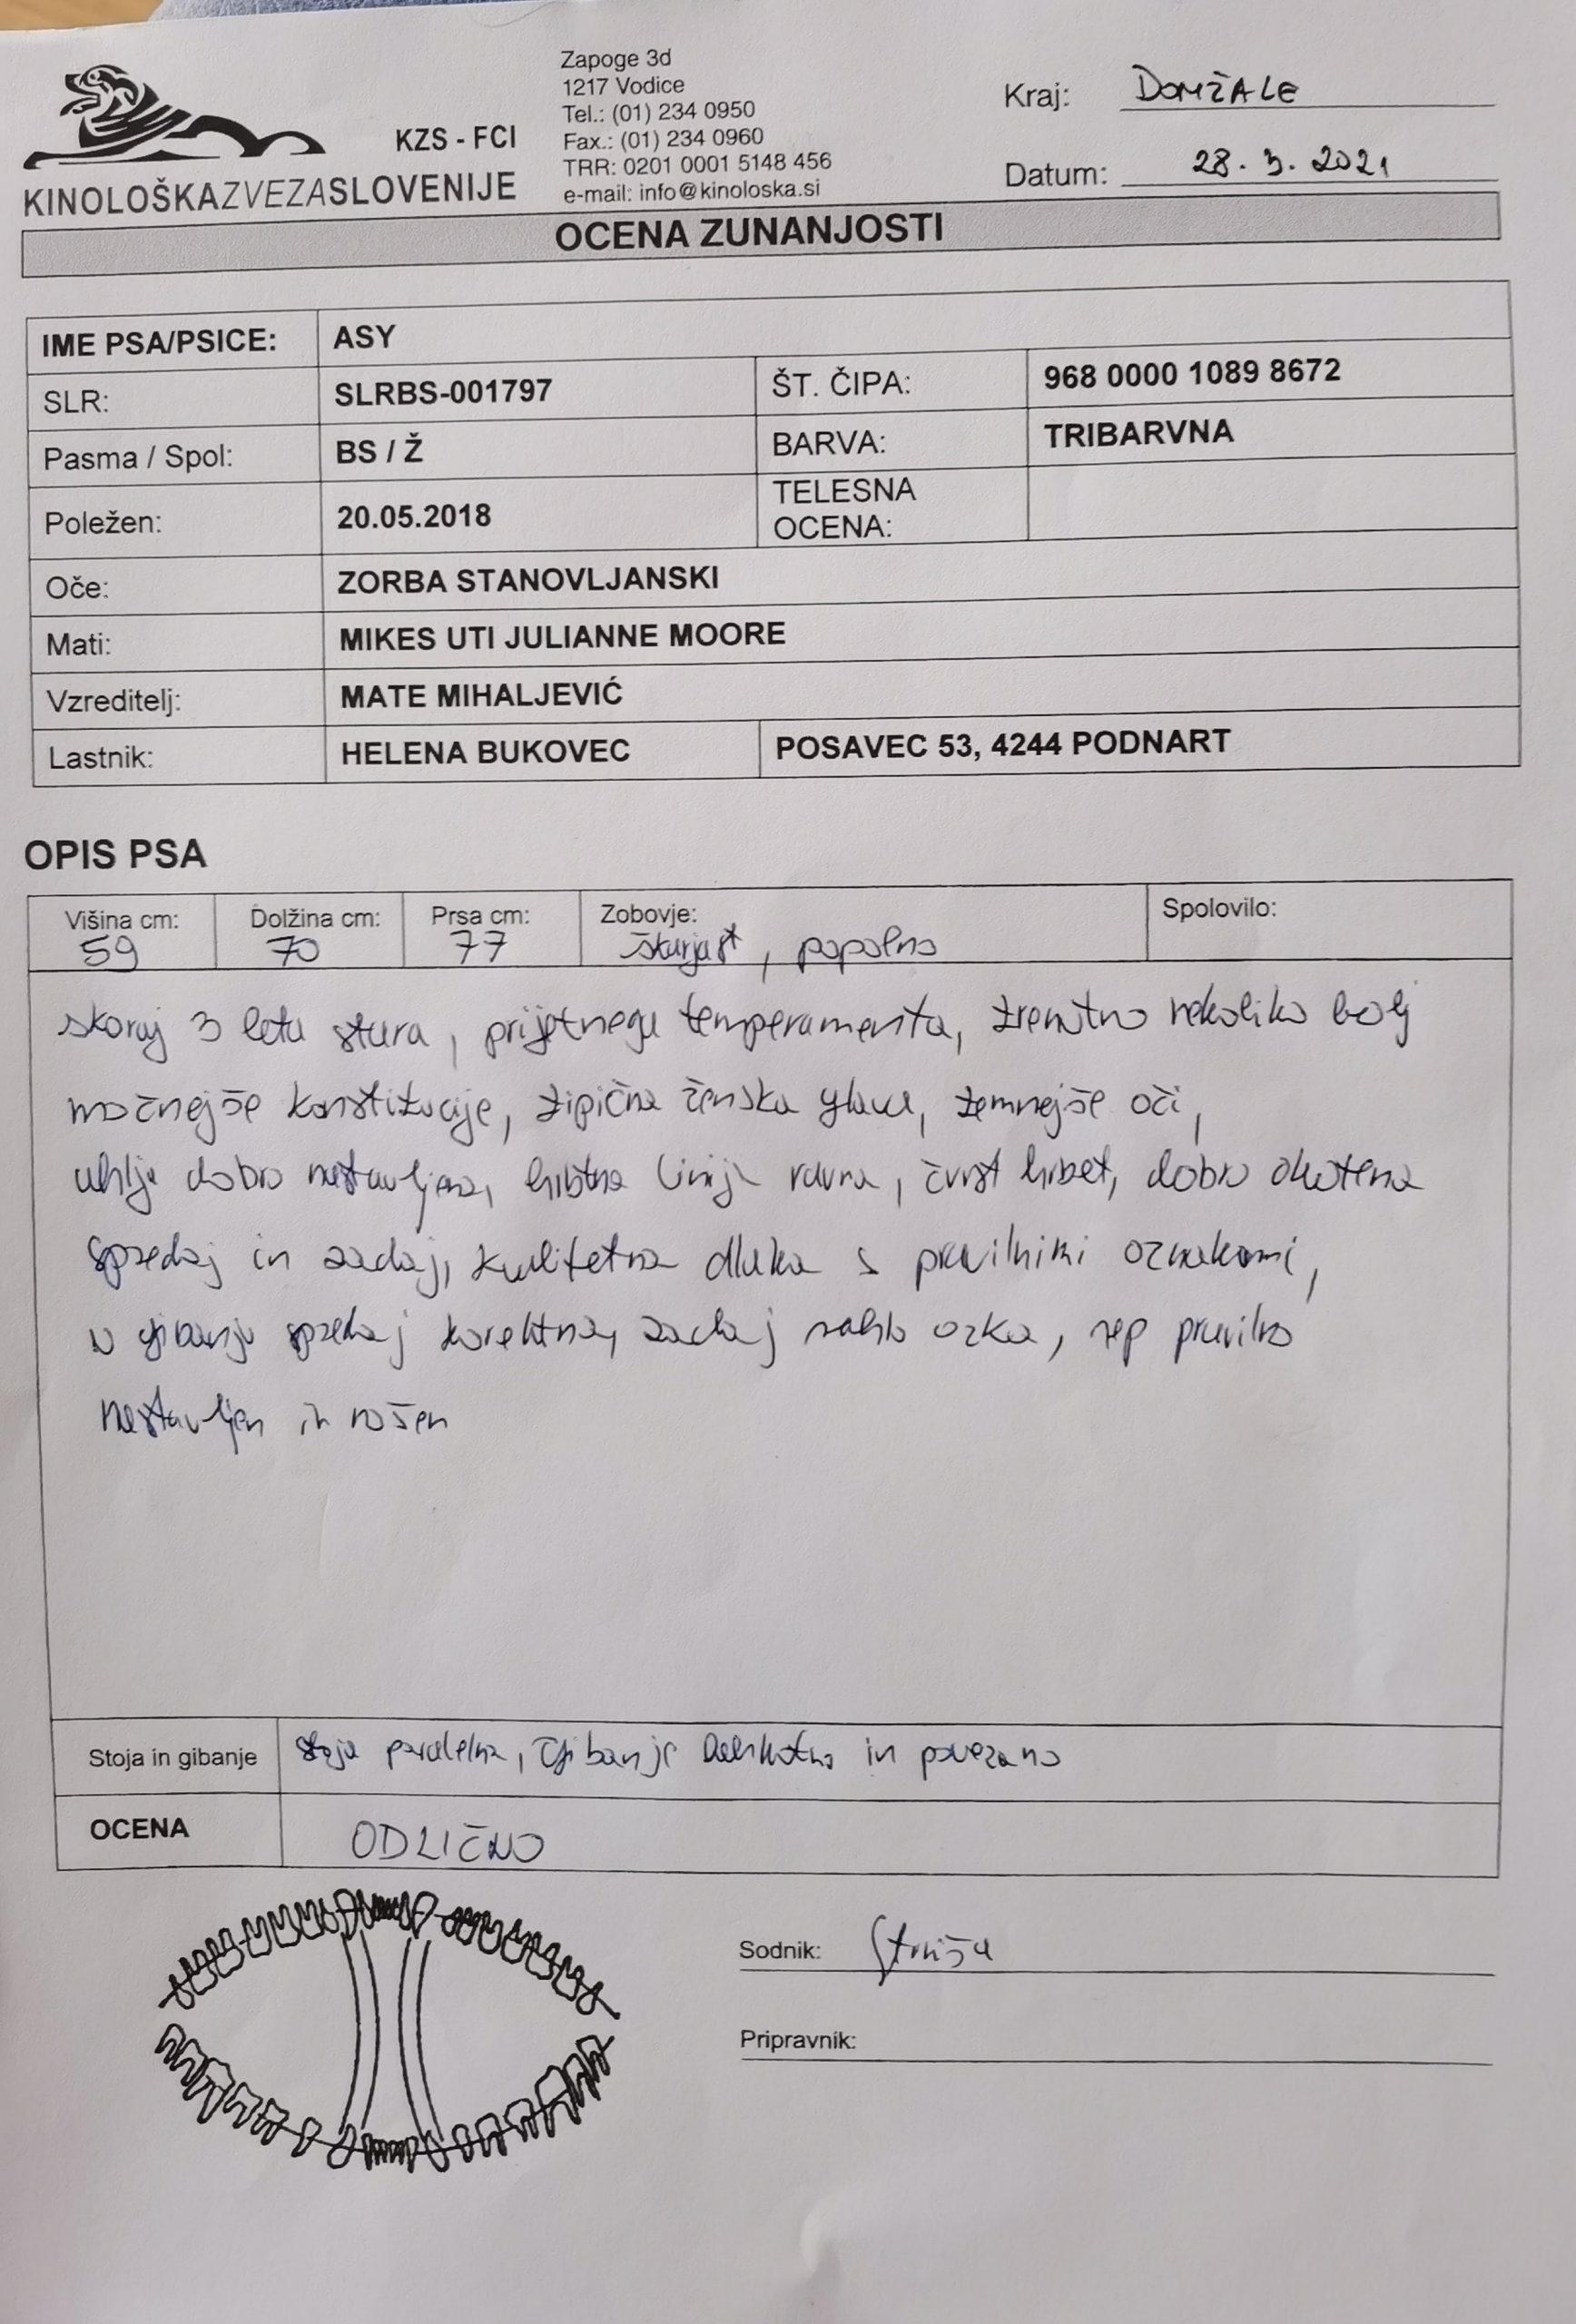 Zapoge 3d
1217 Vodice
Tel.: (01) 234 0950
Fax.: (01) 234 0960
TRR: 0201 0001 5148 456
e-mail: info@kinoloska.si
KZS - FCI
KINOLOŠKAZVEZASLOVENIJE
Kraj: DOMŽALE
Datum: 28. 3. 2021
OCENA ZUNANJOSTI
IME PSA/PSICE: ASY
SLR: SLRBS-001797 ŠT. ČIPA: 968 0000 1089 8672
Pasma / Spol: BS / Ž BARVA: TRIBARVNA
Poležen: 20.05.2018 TELESNA OCENA:
Oče: ZORBA STANOVLJANSKI
Mati: MIKES UTI JULIANNE MOORE
Vzreditelj: MATE MIHALJEVIĆ
Lastnik: HELENA BUKOVEC POSAVEC 53, 4244 PODNART
OPIS PSA
Višina cm: Dolžina cm: Prsa cm: Zobovje: Spolovilo:
59 70 77 škarjast, popolno
skoraj 3 leta stara, prijetnega temperamenta, trenutno nekoliko bolj
močnejše konstitucije, tipična ženska glava, temnejše oči,
uhlja dobro nastavljena, hrbtna linija ravna, čvrst hrbet, dobro okotena
spredaj in zadaj, kvalitetna dlaka s pravilnimi oznakami,
v gibanju spredaj korektna, zadaj rahlo ozka, rep pravilno
nastavljen in nošen
Stoja in gibanje stoja paralelna, gibanje in povezano
OCENA ODLIČNO
Sodnik:
Pripravnik: